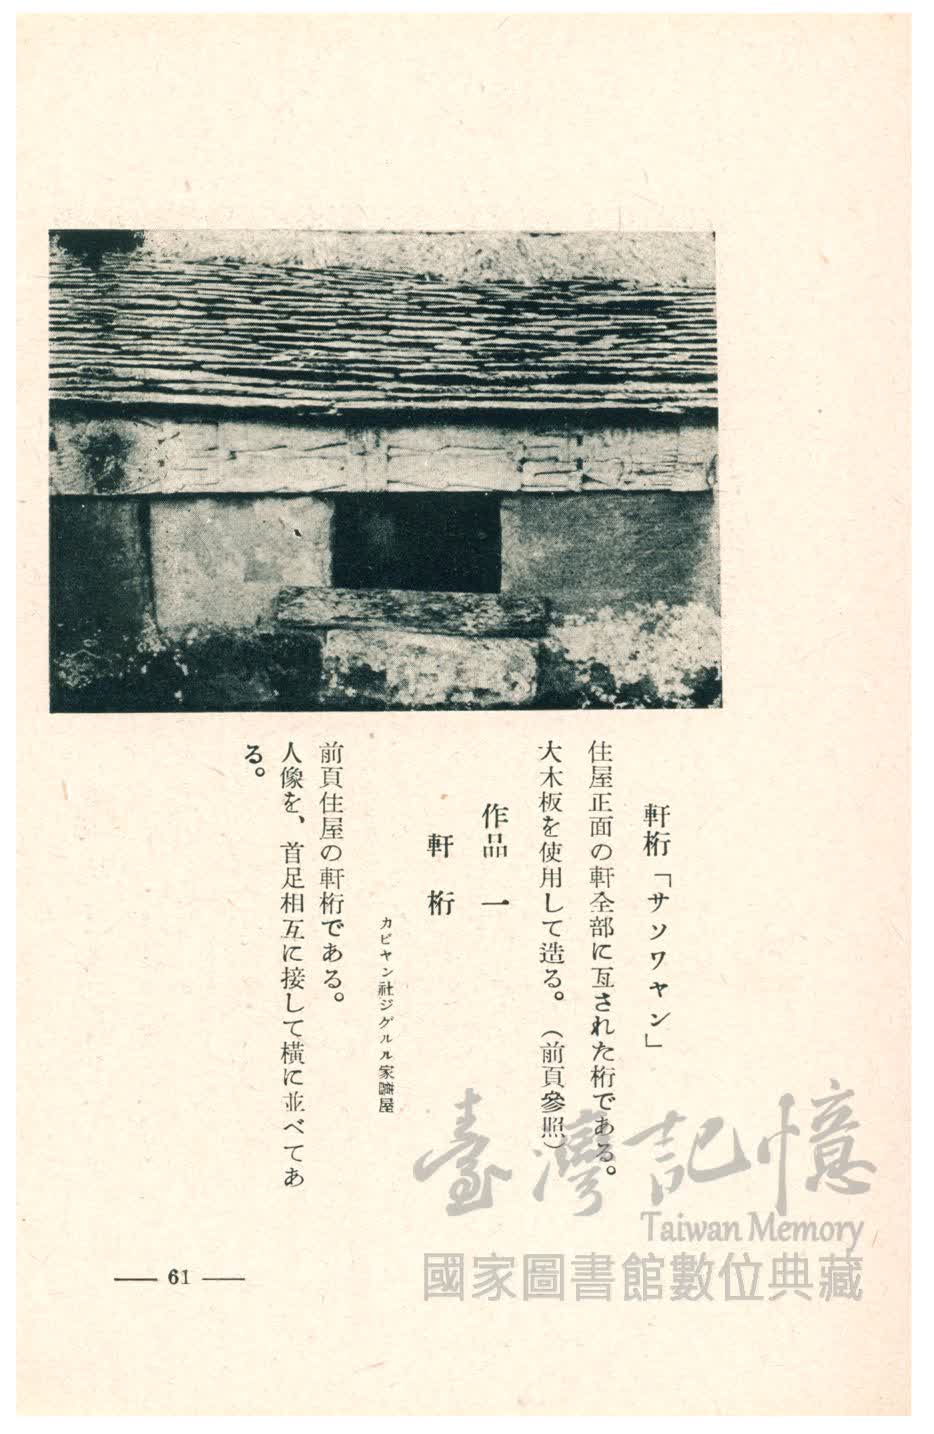 軒桁「サソワヤン」
住屋正面の軒全部に亙された桁である。
大木板を使用して造る。（前頁參照）
作品一
軒桁
カピヤン社ジグルル家舊屋
前頁住屋の軒桁である。
人像を、首足相互に接して橫に並べてあ
る。
臺灣記憶
Taiwan Memory
國家圖書館數位典藏
— 61 —